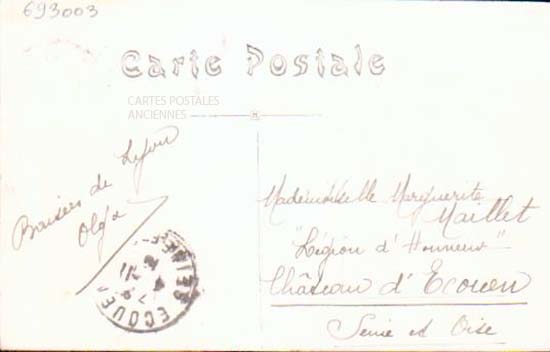 693003
Carte Postale
CARTES POSTALES
ANCIENNES
Baisers de Lyon
Olga
Mademoiselle Marguerite
Maillet
"Légion d'Honneur"
Château d'Ecouen
Seine et Oise
ECOUEN
SEINE-ET